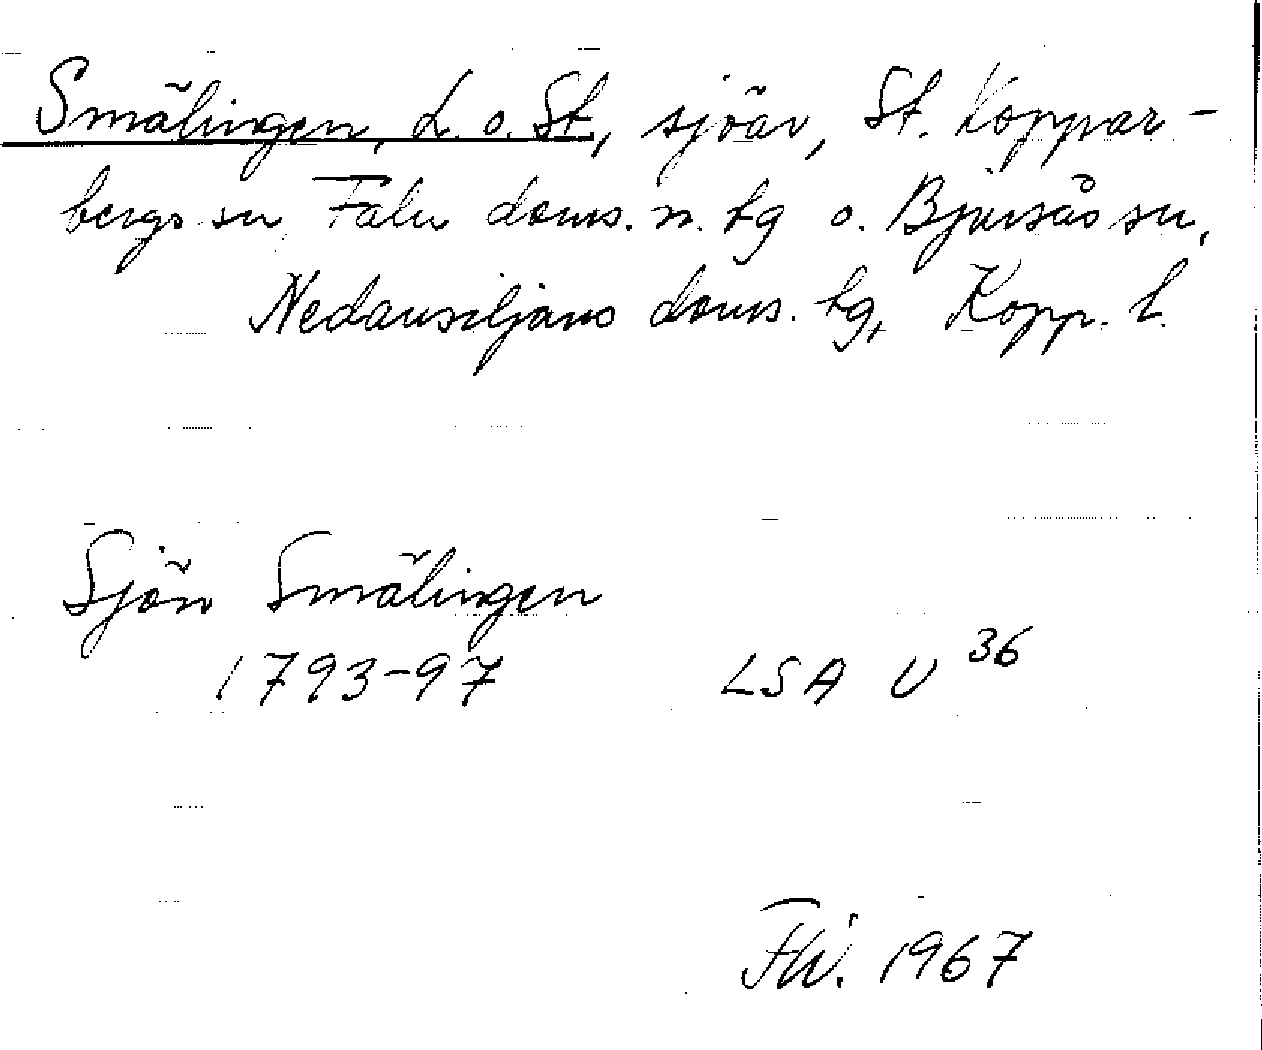 Smälingen, L. o. St., sjöar, St. Koppar-
bergs sn Falu doms. n. tg o. Bjursås sn,
Nedansiljans doms. tg, Kopp. l.
Sjön Smälingen
1793-97 LSA U 36
1967